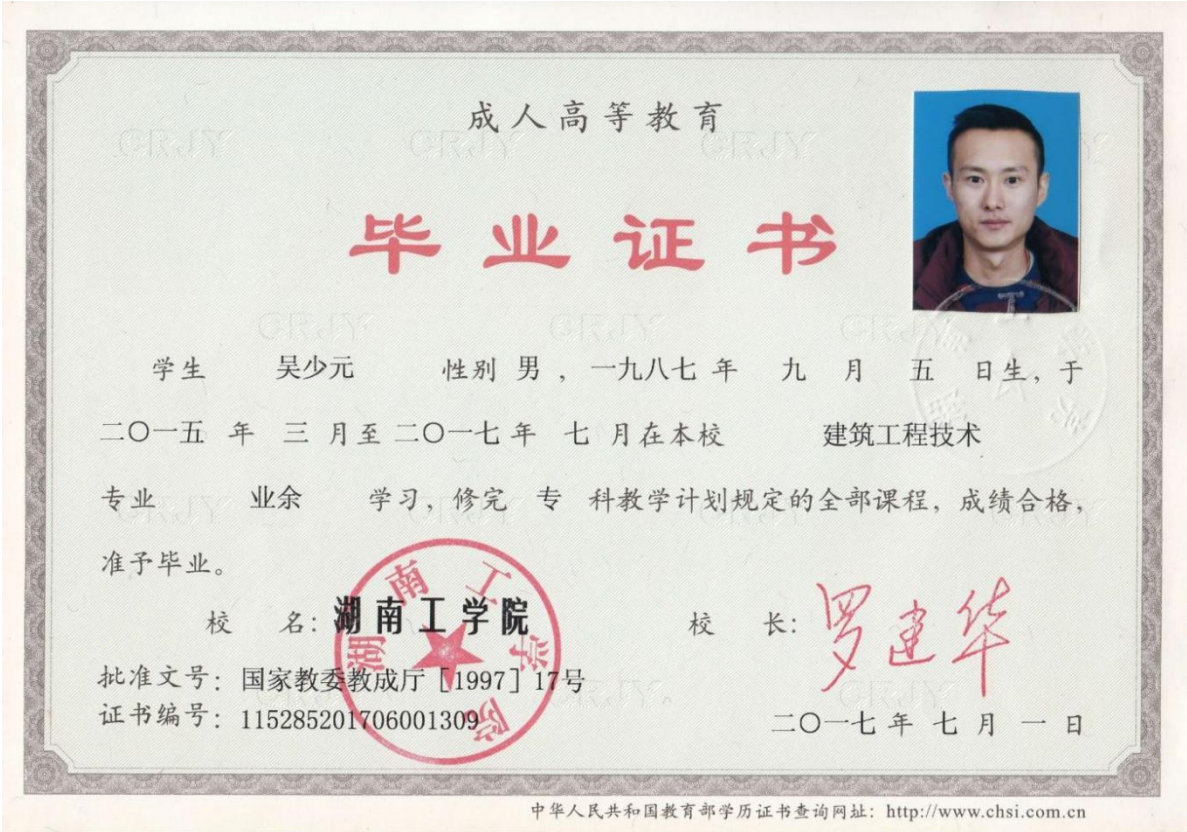 成人高等教育
毕业证书
学生 吴少元 性别 男 ，一九八七 年 九 月 五 日生，于
二〇一五 年 三 月至 二〇一七 年 七 月在本校 建筑工程技术
专业 业余 学习，修完 专 科教学计划规定的全部课程，成绩合格，
准予毕业。
校 名：湖南工学院 校 长：罗建华
湖南工学院
批准文号：国家教委教成厅［1997］17号
证书编号：115285201706001309
二〇一七 年 七 月 一 日
中华人民共和国教育部学历证书查询网址：http://www.chsi.com.cn
CRJY